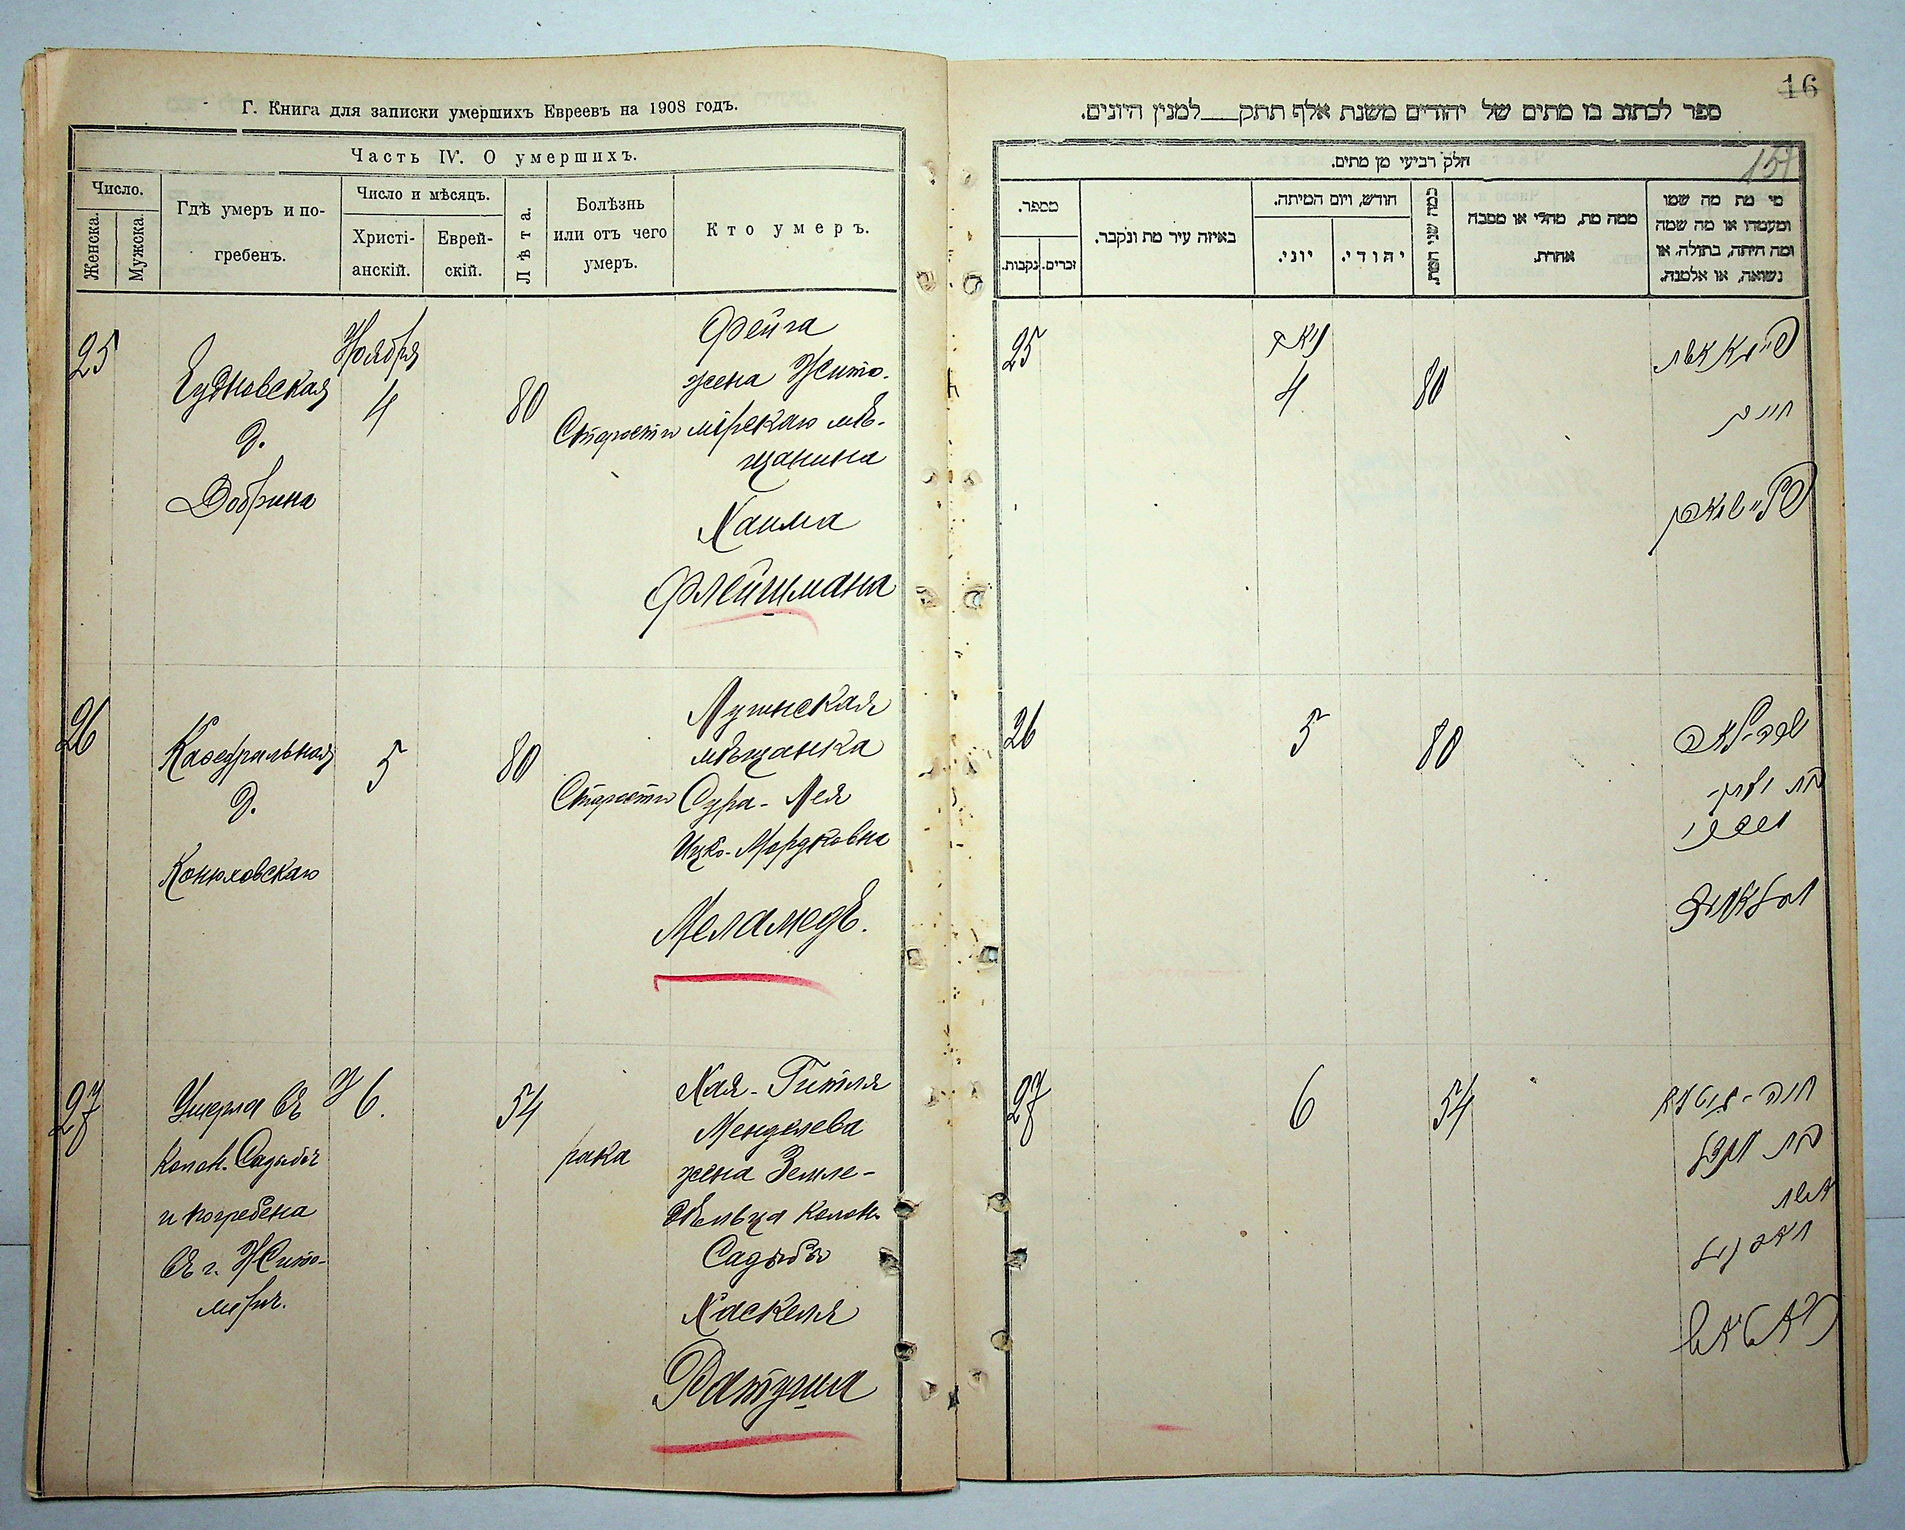 Г. Книга для записки умершихъ Евреевъ на 1908 годъ.
Часть IV. О умершихъ.
Число.
Женска.
Мужска.
Гдѣ умеръ и по-
гребенъ.
Число и мѣсяцъ.
Христі-
анскій.
Еврей-
скій.
Лѣта.
Болѣзнь
или отъ чего
умеръ.
Кто умеръ.
25
Чудновская
д.
Добрина
Ноября
4
80
Старости
Фейга
жена Жито-
мірскаго мѣ-
щанина
Хаима
Флейшмана
26
Каѳедральная
д.
Конюховскаго
5
80
Старости
Лугинская
мѣщанка
Сура-Лея
Ицко-Мордковна
Меламедъ.
27
Умерла въ
колон.
и погребена
въ г. Жито-
мірѣ.
6.
54
рака
Хая-Гитля
Менделева
жена Земле-
дѣльца колон.
Хаскеля
Ратуша
16
137
ספר לכתוב בו מתים של יהודים משנת אלף תתק___למנין היונים.
חלק רביעי מן מתים.
מי מת מה שמו
ומעמדו או מה שמה
ומה היתה, בתולה, או
נשואה, או אלמנה.
ממה מת, מחלי או מסבה
אחרת.
כמה שני המת.
חודש, ויום המיתה.
יהודי.
יוני.
באיזה עיר מת ונקבר.
מספר.
זכרים.
נקבות.
25
4
80
פייגא אשת
חיים
פליישמאן
26
5
80
שרה-לאה
בת יצחק-
מרדכי
מלאמעד
27
6
54
חיה-גיטלא
בת מענדל
אשת
חאסקעל
ראטוש